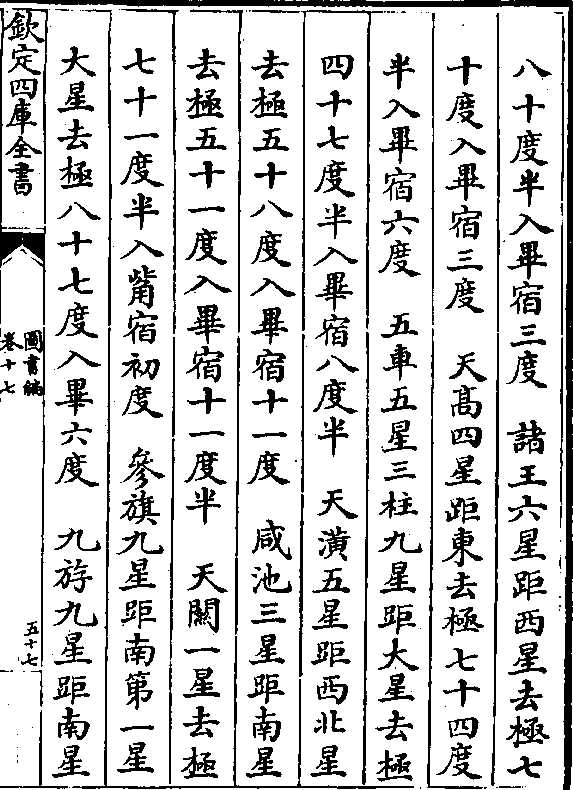 八十度半入畢宿三度　諸王六星距西星去極七
十度入畢宿三度　天髙四星距東去極七十四度
半入畢宿六度　五車五星三柱九星距大星去極
四十七度半入畢宿八度半　天潢五星距西北星
去極五十八度入畢宿十一度　咸池三星距南星
去極五十一度入畢宿十一度半　天闗一星去極
七十一度半入觜宿初度　參旗九星距南第一星
大星去極八十七度入畢六度　九斿九星距南星
欽定四庫全書
圖書編
卷十七
五十七